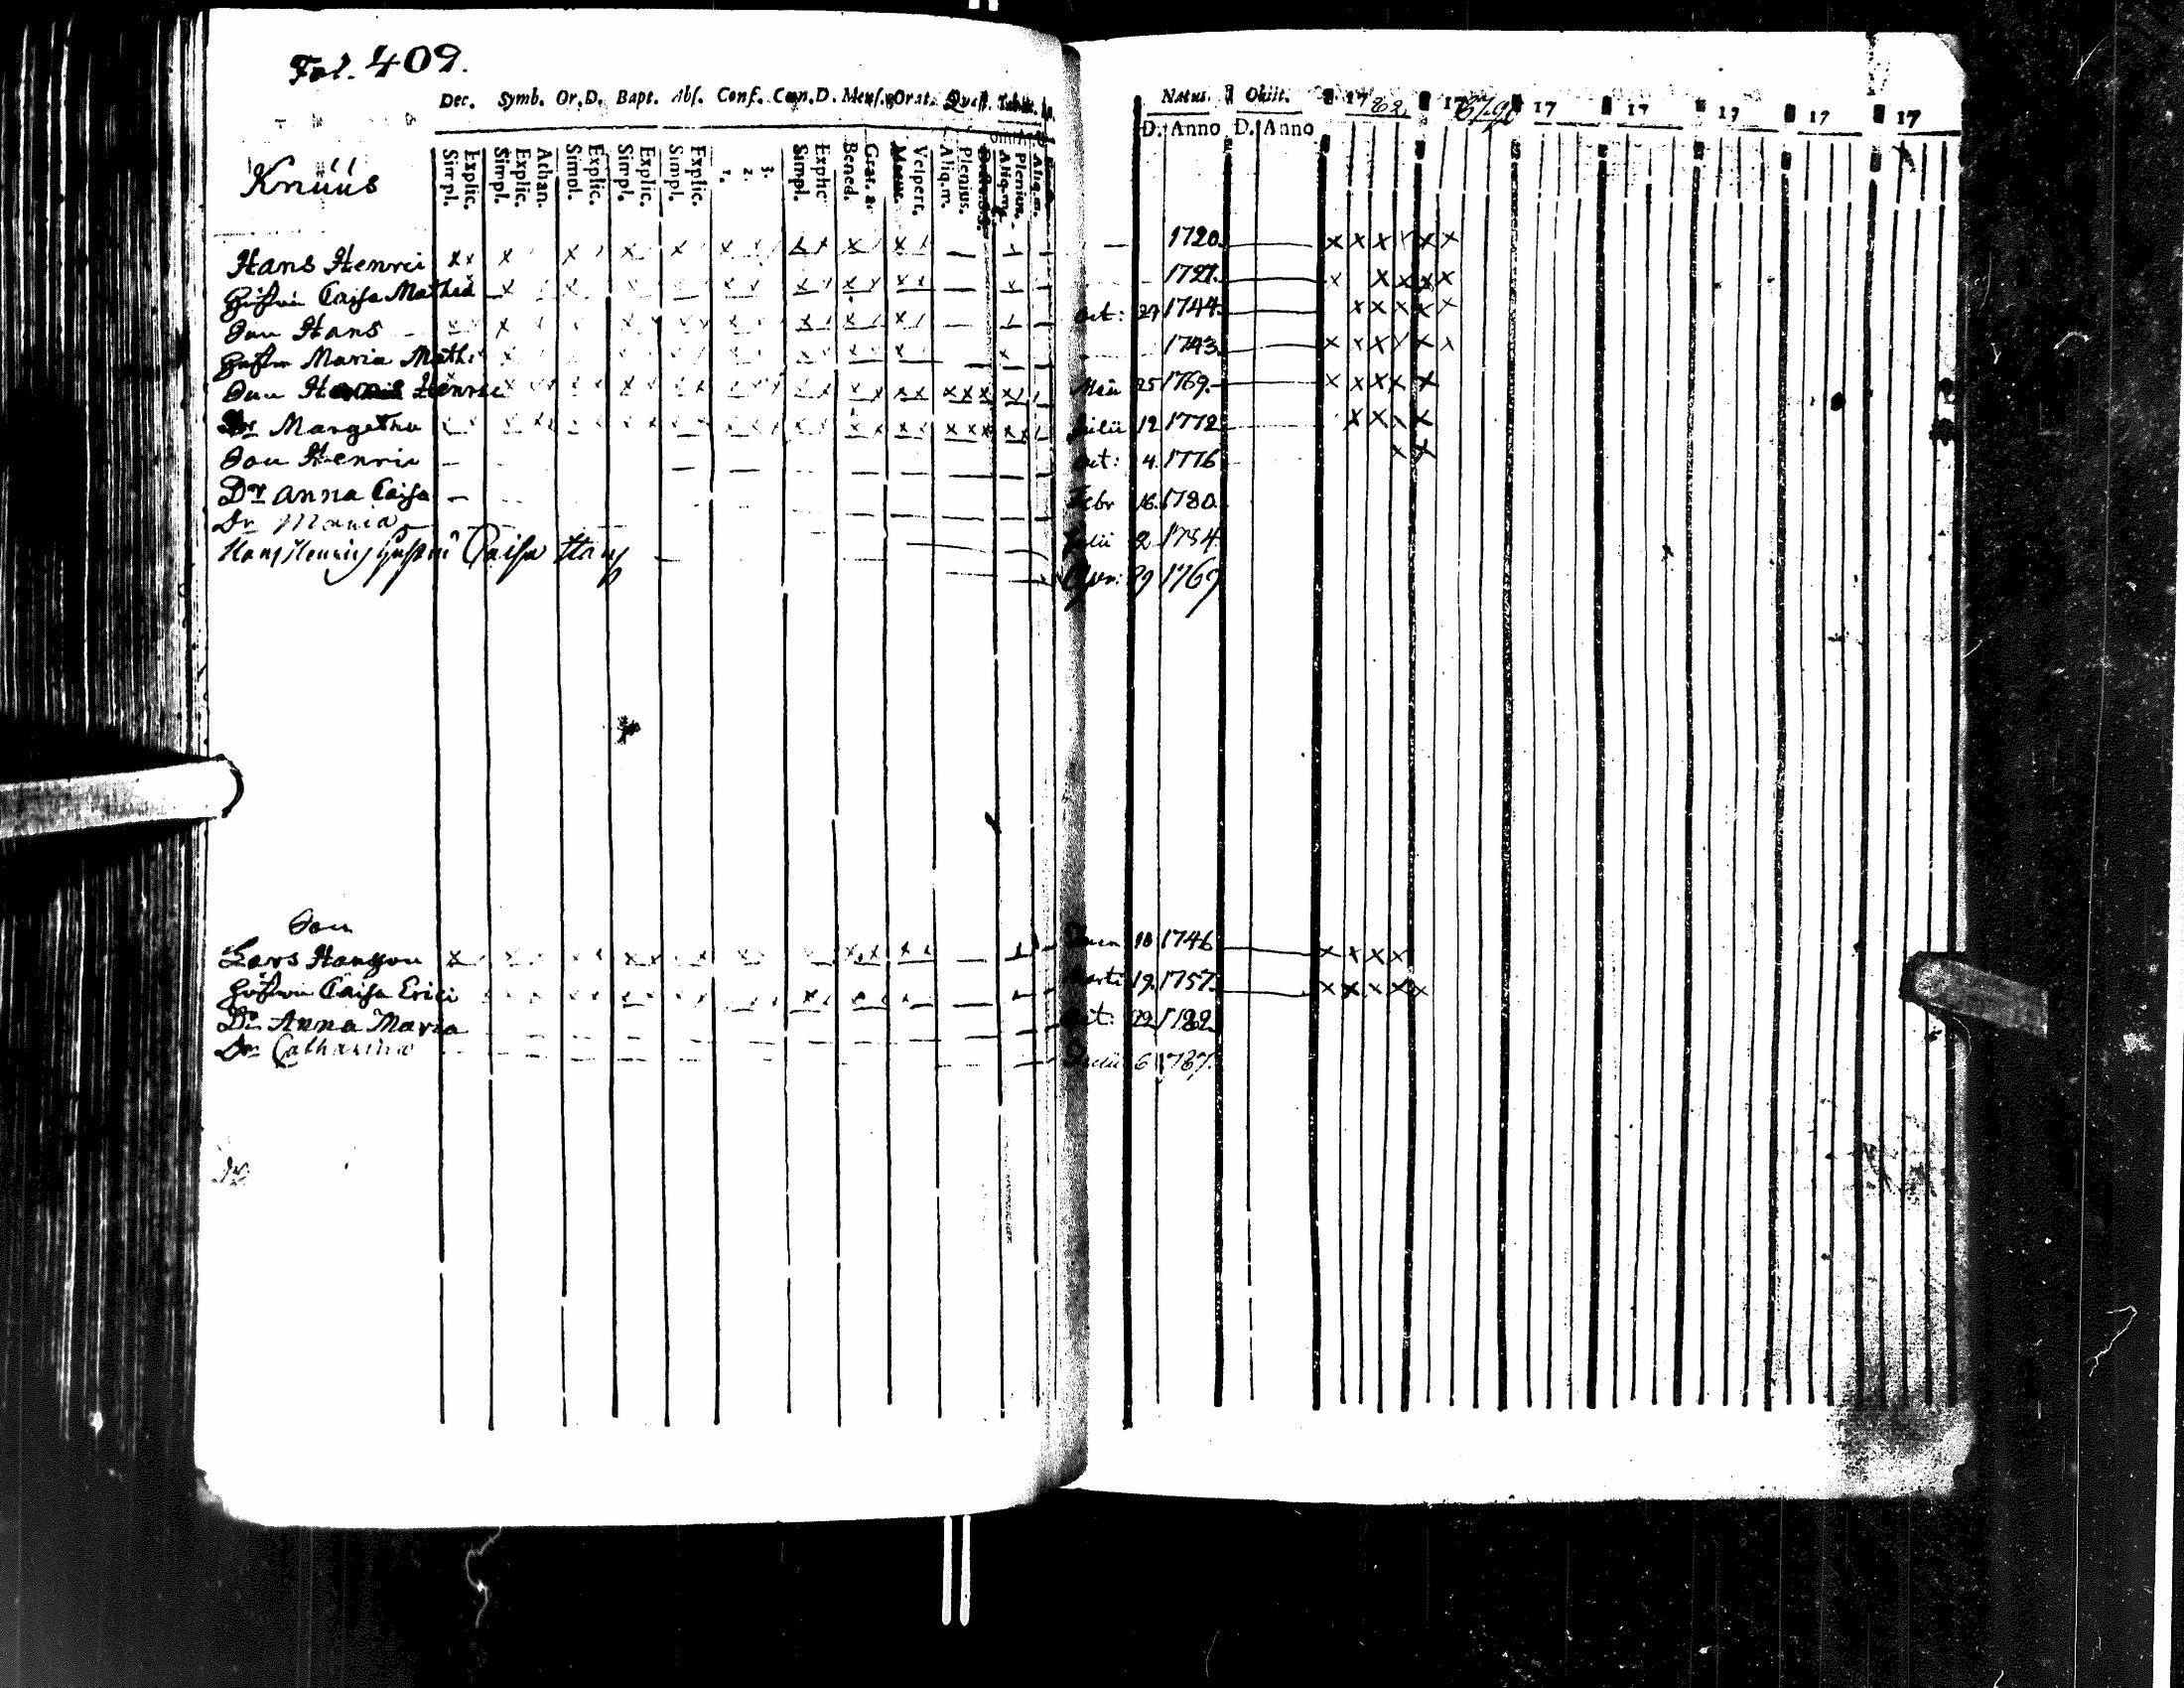 Fol. 409.
Dec. Symb. Or.D. Bapt. Abs. Conf. Cœn.D. Mens. Orat. Quæst. Tabul.
Natus. Obiit. 1782 17 17 17 17 17 17
D. Anno D. Anno
Simpl. Explic. Simpl. Explic. Athan. Simpl. Explic. Simpl. Explic. Simpl. Explic. 1. 2. 3. Simpl. Explic Bened. Grat. a. Vespert. Aliq.m. Plenius. Aliq.m. Plenius. Aliq.m.
Knúús
Hans Henrici 1720.
Hustru Caisa Mathed 1727.
Son Hans Oct: 27 1744
Hustru Maria Math: 1743
Son Henric Maii 25 1769.
Dr Margetha Julii 12 1772
Son Henric Oct: 4. 1776
Dr Anna Caisa Febr 16. 1780.
Dr Maria Julii 2
Hans Henrics hustru Caisa Hans Apr: 29
Son
Lars Hansson 18 1746
Hustru Caisa Erici Marti 19. 1757.
Dr Anna Maria Oct: 22 1782
Dr Catharina 6 1787.